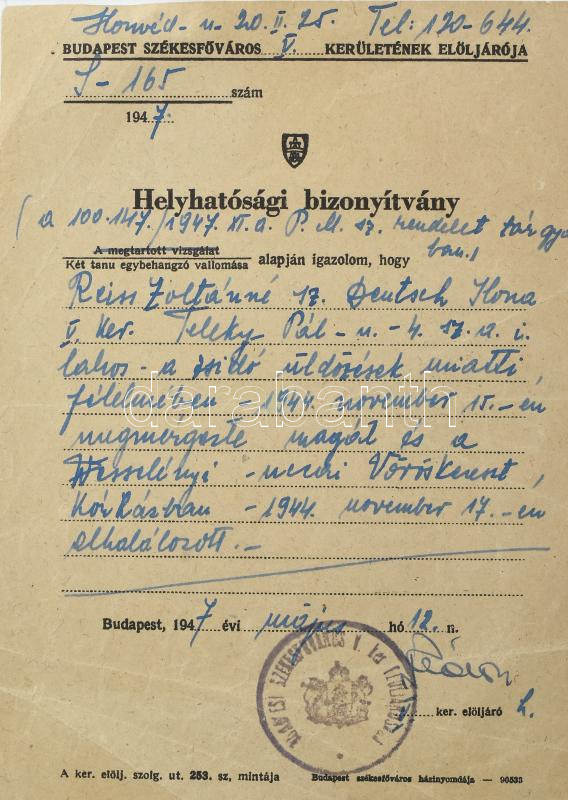 Honvéd - u. 20. II. 25. Tel: 120-644.
BUDAPEST SZÉKESFŐVÁROS V. KERÜLETÉNEK ELÖLJÁRÓJA
S - 165 szám
1947.
Helyhatósági bizonyítvány
(a 100.147./1947. XI. a. P. M. sz. rendelet tárgyá
ban.)
A megtartott vizsgálat
Két tanu egybehangzó vallomása alapján igazolom, hogy
Reiss Zoltánné sz. Deutsch Ilona
V. ker. Teleky Pál - u. - 4. sz. a. i.
lakos - a zsidó üldözések miatti
félelmében - 1944. november 15.-én
megmérgezte magát és a
Wesselényi - uccai Vöröskereszt,
Kórházban - 1944. november 17.-én
elhalálozott. -
Budapest, 1947 évi május hó 12. n.
ker. elöljáró h.
BUDAPEST SZÉKESFŐVÁROS V. ker. ELÖLJÁRÓSÁGA
A ker. elölj. szolg. ut. 253. sz. mintája Budapest székesfőváros házinyomdája — 96533
darabanth.com